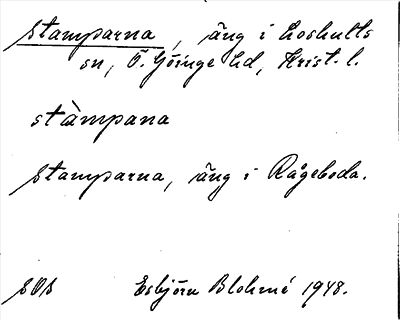 Stamparna, äng i Loshults
sn, Ö. Göinge hd, Krist. l.
stàmpana
Stamparna, äng i Rågeboda.
SOA Esbjörn Blohmé 1948.